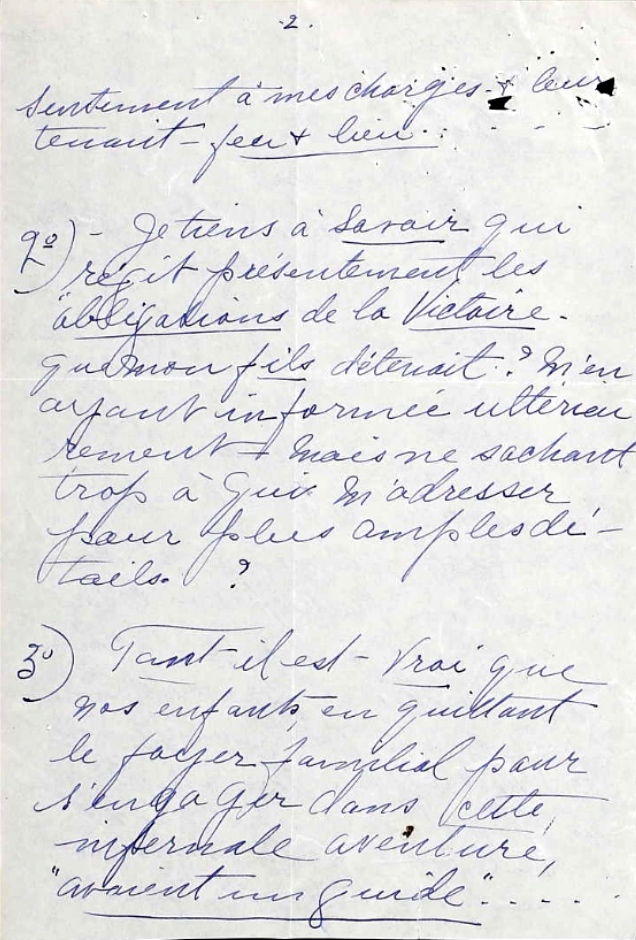 -2.
sentement à mes charges & leur
tenant - feu & lieu. . . . .
2º) - Je tiens à Savoir qui
régit présentement les
"obligations de la Victoire -
que mon fils détenait ? M'en
ayant informée ultérieu
rement - Mais ne sachant
trop à Qui M'adresser
pour plus amples dé-
tails. ?
3º) Tant - il est - Vrai que
nos enfants, en quittant
le foyer familial pour
s'engager dans cette
infernale aventure,
"avaient un guide" . . . . .